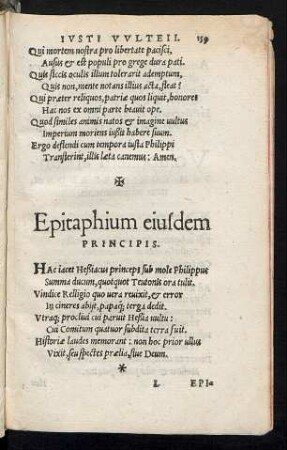 IVSTI VVLTEII. 159
Qui mortem nostra pro libertate pacisci,
Ausus & est populi pro grege dura pati.
Quis siccis oculis illum tolerarit ademptum,
Quis non, mente notans illius acta, fleat?
Qui præter reliquos, patriæ quos liquit, honores
Hac nos ex omni parte beauit ope.
Quod similes animis natos & imagine uultus
Imperium moriens iussit habere suum.
Ergo deflendi cum tempora iusta Philippi
Transierint, illis læta canemus: Amen.
✠
Epitaphium eiusdem
PRINCIPIS.
HAc iacet Hessiacus princeps sub mole Philippus
Summa ducum, quotquot Teutonis ora tulit.
Vindice Relligio quo uera reuixit, & error
In cineres abijt, papaq; terga dedit.
Vtraq; procliui cui paruit Hessia uultu:
Cui Comitum quatuor subdita terra fuit.
Historiæ laudes memorant: non hoc prior ullus
Vixit, seu spectes prælia, siue Deum.
*
L EPI=